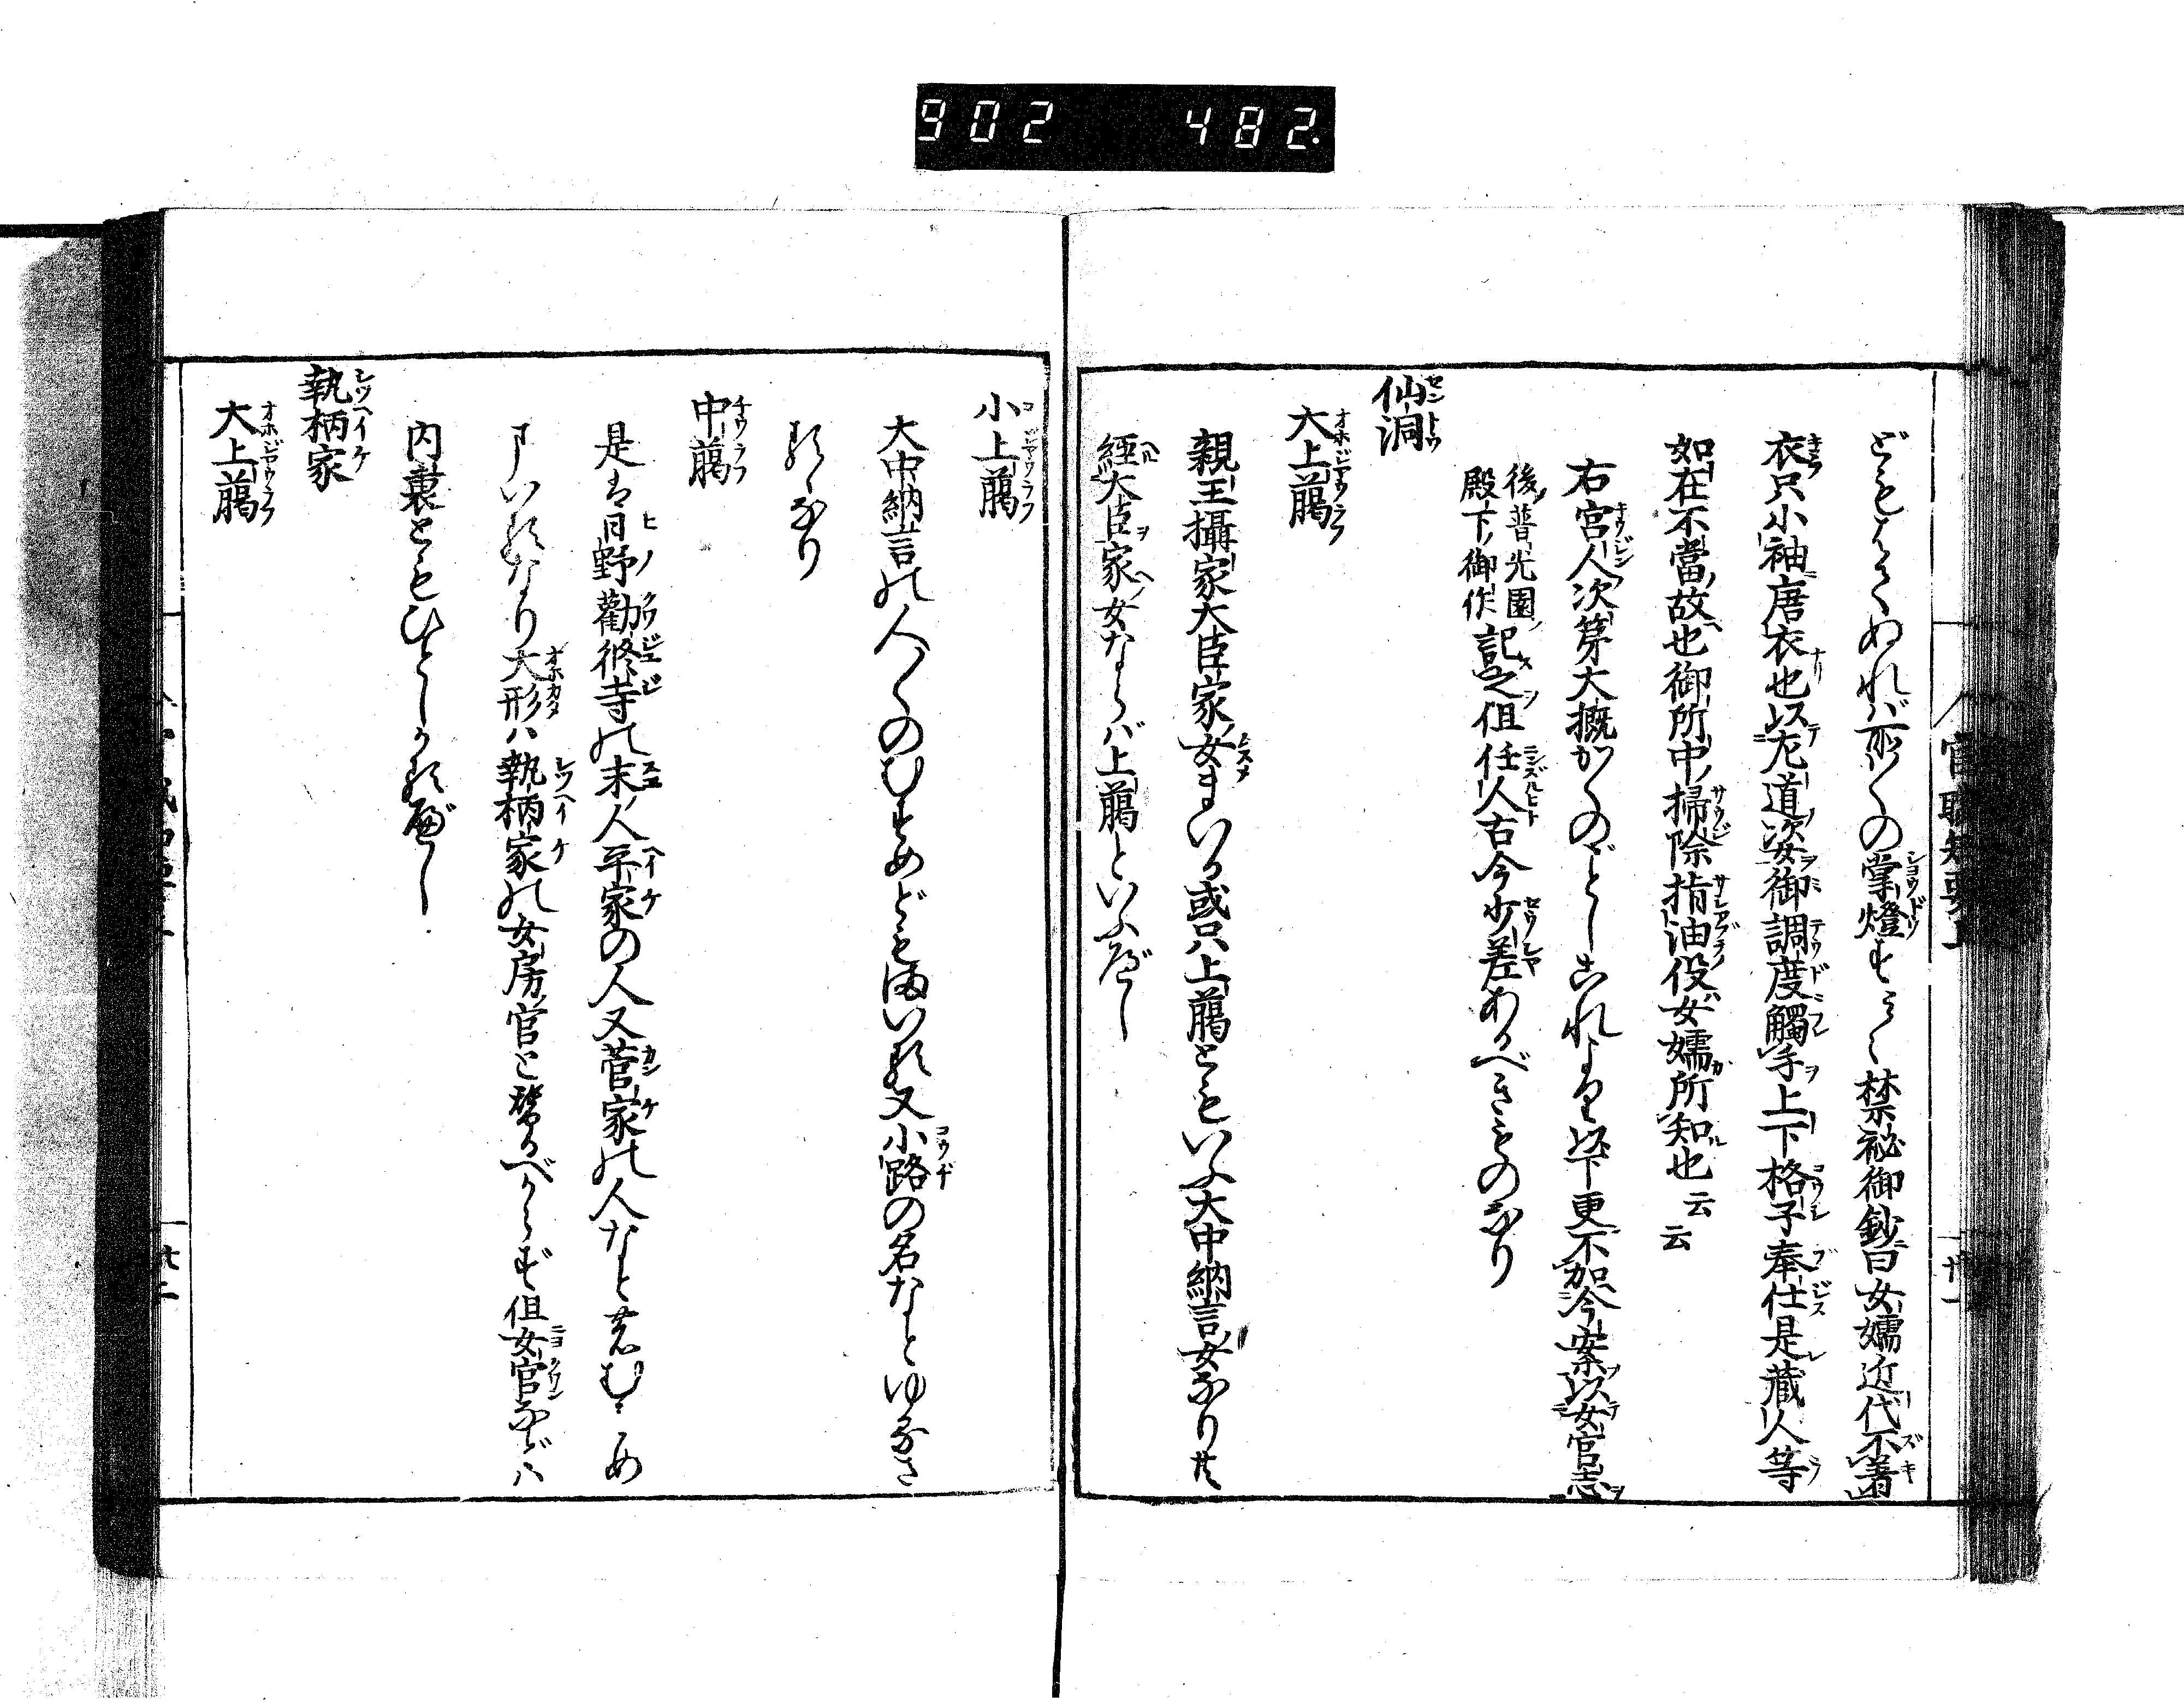 902 482.
ども
ぬれバ所〱の掌燈す
禁秘御鈔曰女嬬近代不着
衣只小袖唐衣也以尤道姿御調度觸手上下格子奉仕是藏人等
如在不當故也御所中掃除指油役女嬬所知也云云
右宮人次第大概かくのごとしこれより以下更不加今案以女官志
後普光園
殿下御作
記之但任人古今少差あるべきものなり
仙洞
大上﨟
親王攝家大臣家女まいる或只上﨟ともいふ大中納言女なり共
経大臣家女ならバ上﨟といふべし
小上﨟
大中納言の人〱のむすめどもまいる又小路の名などゆるさ
るゝなり
中﨟
是は日野勸修寺の末人平家の人又菅家の人などむすめ
まいるなり大形ハ執柄家の女房官と替るべからず但女官などハ
内裏ともひとしかるべし
執柄家
大上﨟